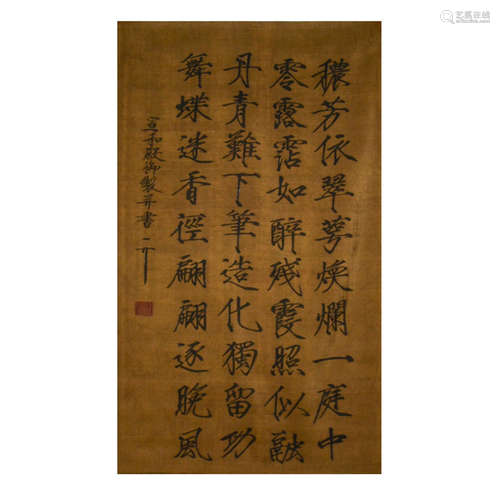 穠芳依翠萼煥爛一庭中
零露霑如醉残霞照似融
丹青難下筆造化獨留功
舞蝶迷香徑翩翩逐晚風
宣和殿御製并書
艺狐在线